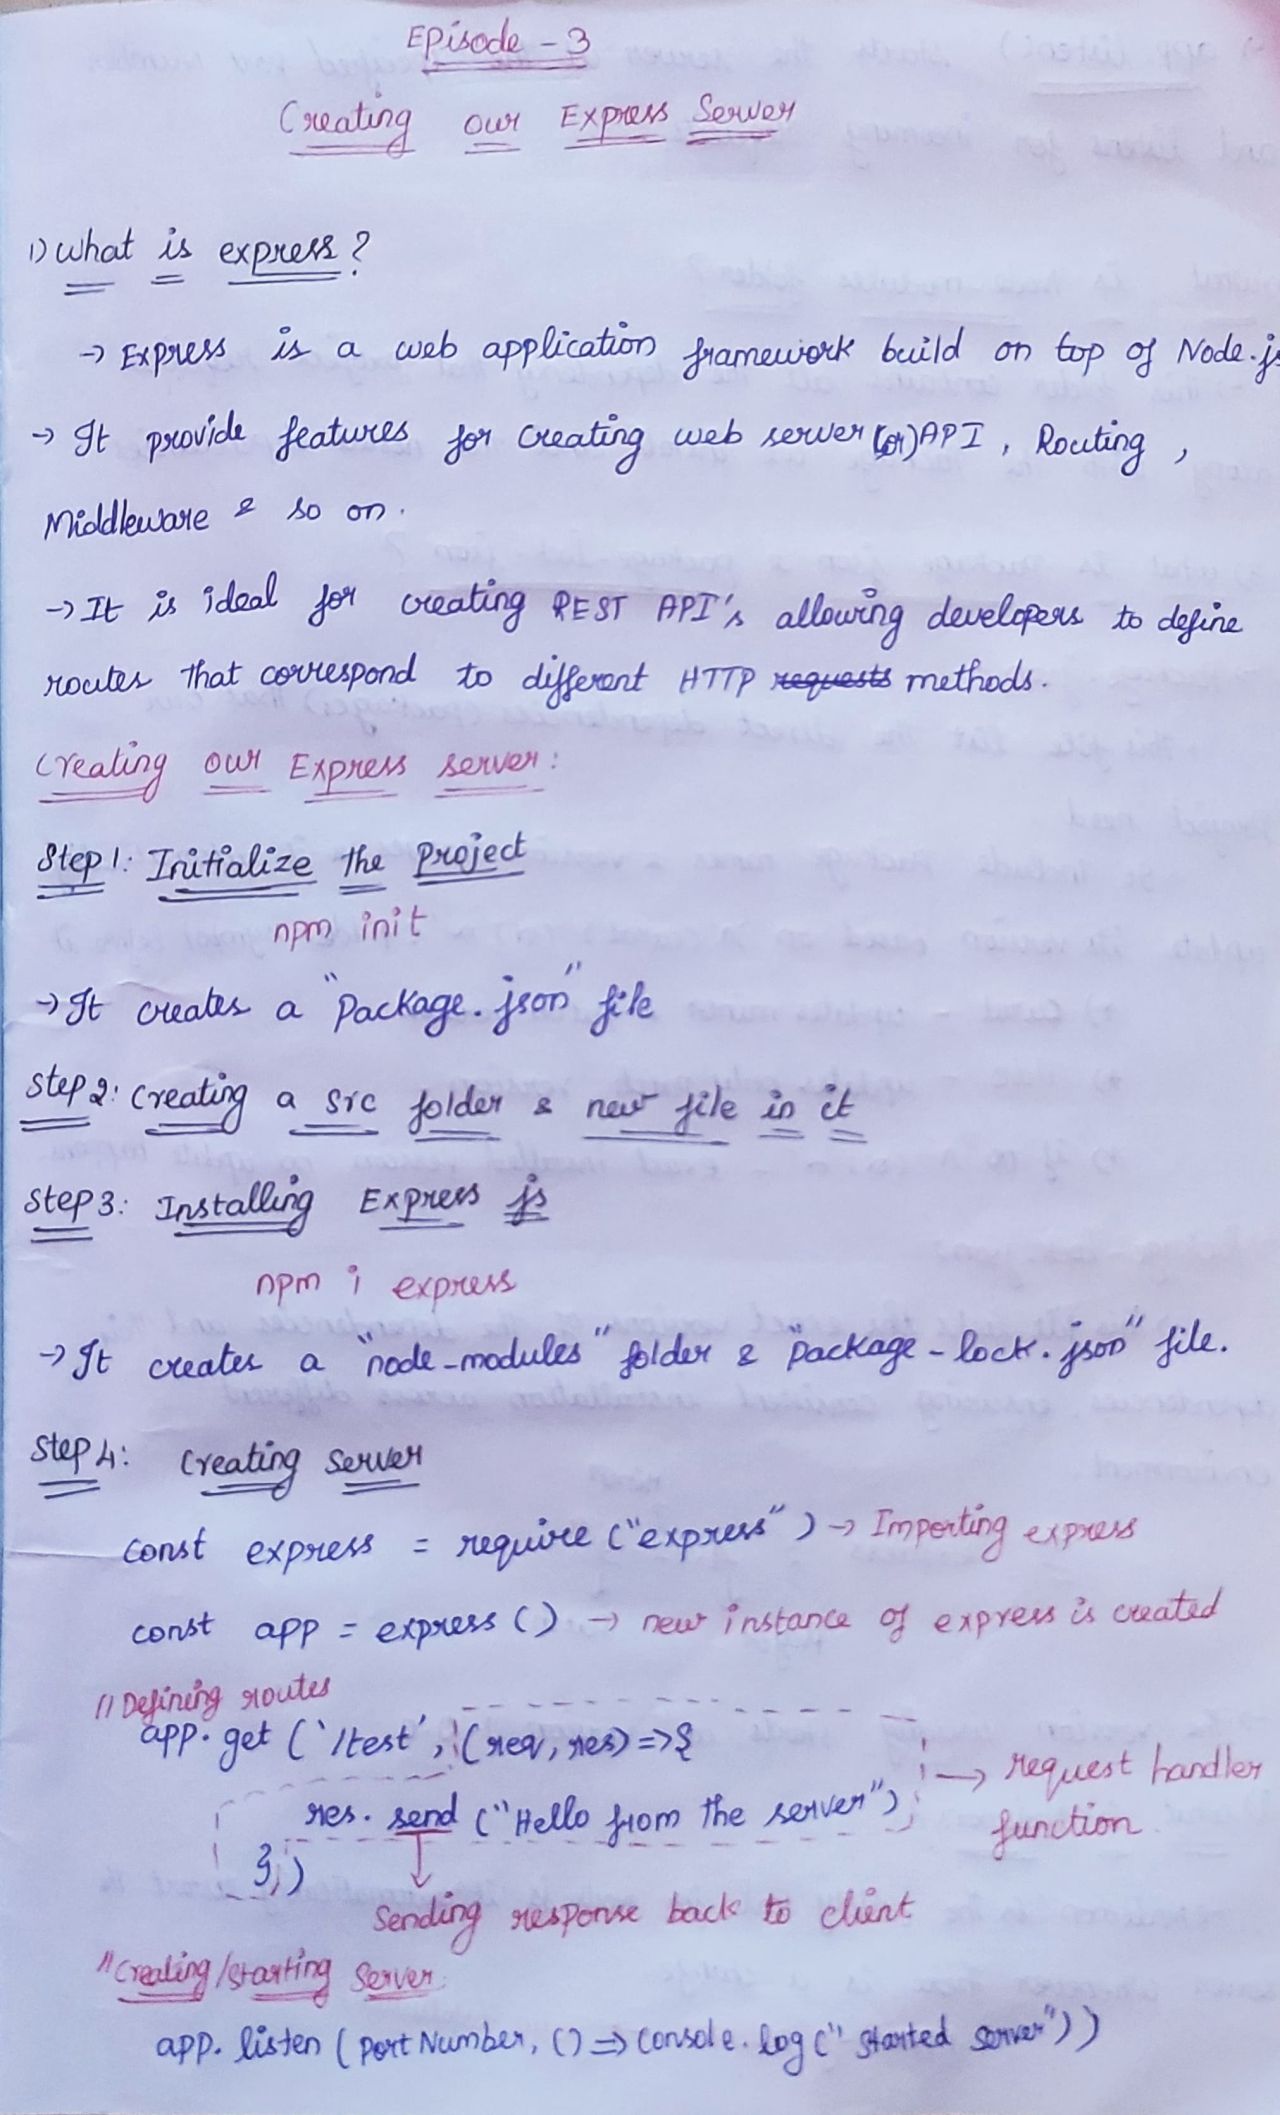 Episode - 3
Creating our Express Server
1) What is express?
→ Express is a web application framework build on top of Node.js
→ It provide features for creating web server (or) API, Routing,
Middleware & so on.
→ It is ideal for creating REST API's allowing developers to define
routes that correspond to different HTTP requests methods.
Creating our Express server:
Step 1: Initialize the Project
npm init
→ It creates a "Package.json" file
Step 2: Creating a src folder & new file in it
Step 3: Installing Express js
npm i express
→ It creates a "node-modules" folder & "Package-lock.json" file.
Step 4: Creating Server
const express = require ("express") → Importing express
const app = express () → new instance of express is created
// Defining routes
app.get ('/test', (req, res) => {
→ request handler
res.send ("Hello from the server")
function
},)
Sending response back to client
// Creating/starting Server
app.listen (Port Number, () => console.log (" Started Server"))